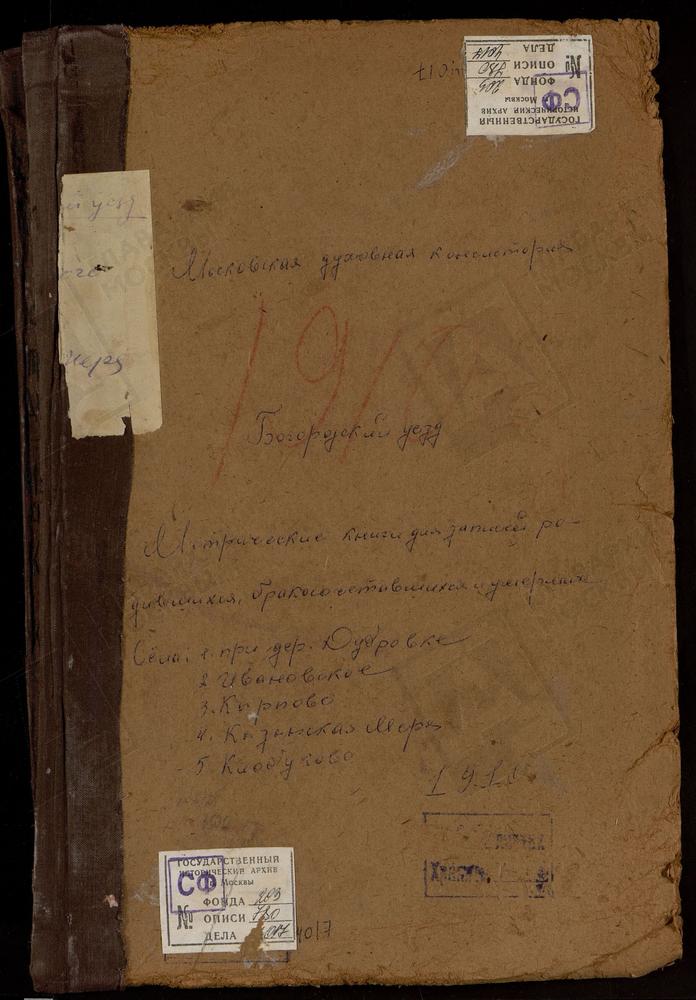 4017
ГОСУДАРСТВЕННЫЙ
ИСТОРИЧЕСКИЙ АРХИВ
Москвы
СФ
ФОНДА 203
№ ОПИСИ 780
ДЕЛА 4017
й уезд
Московская духовная консистория
1910
Богородский уезд
Метрические книги для записей ро-
дившихся, бракосочетавшихся и умерших
Села: 1. при дер. Дубровке
2. Ивановское
3. Карпово
4. Казанская Мерз
5. Клобуково
1910
ГОСУДАРСТВЕННЫЙ
ИСТОРИЧЕСКИЙ АРХИВ
Москвы
СФ
ФОНДА 203
№ ОПИСИ 780
ДЕЛА 4017